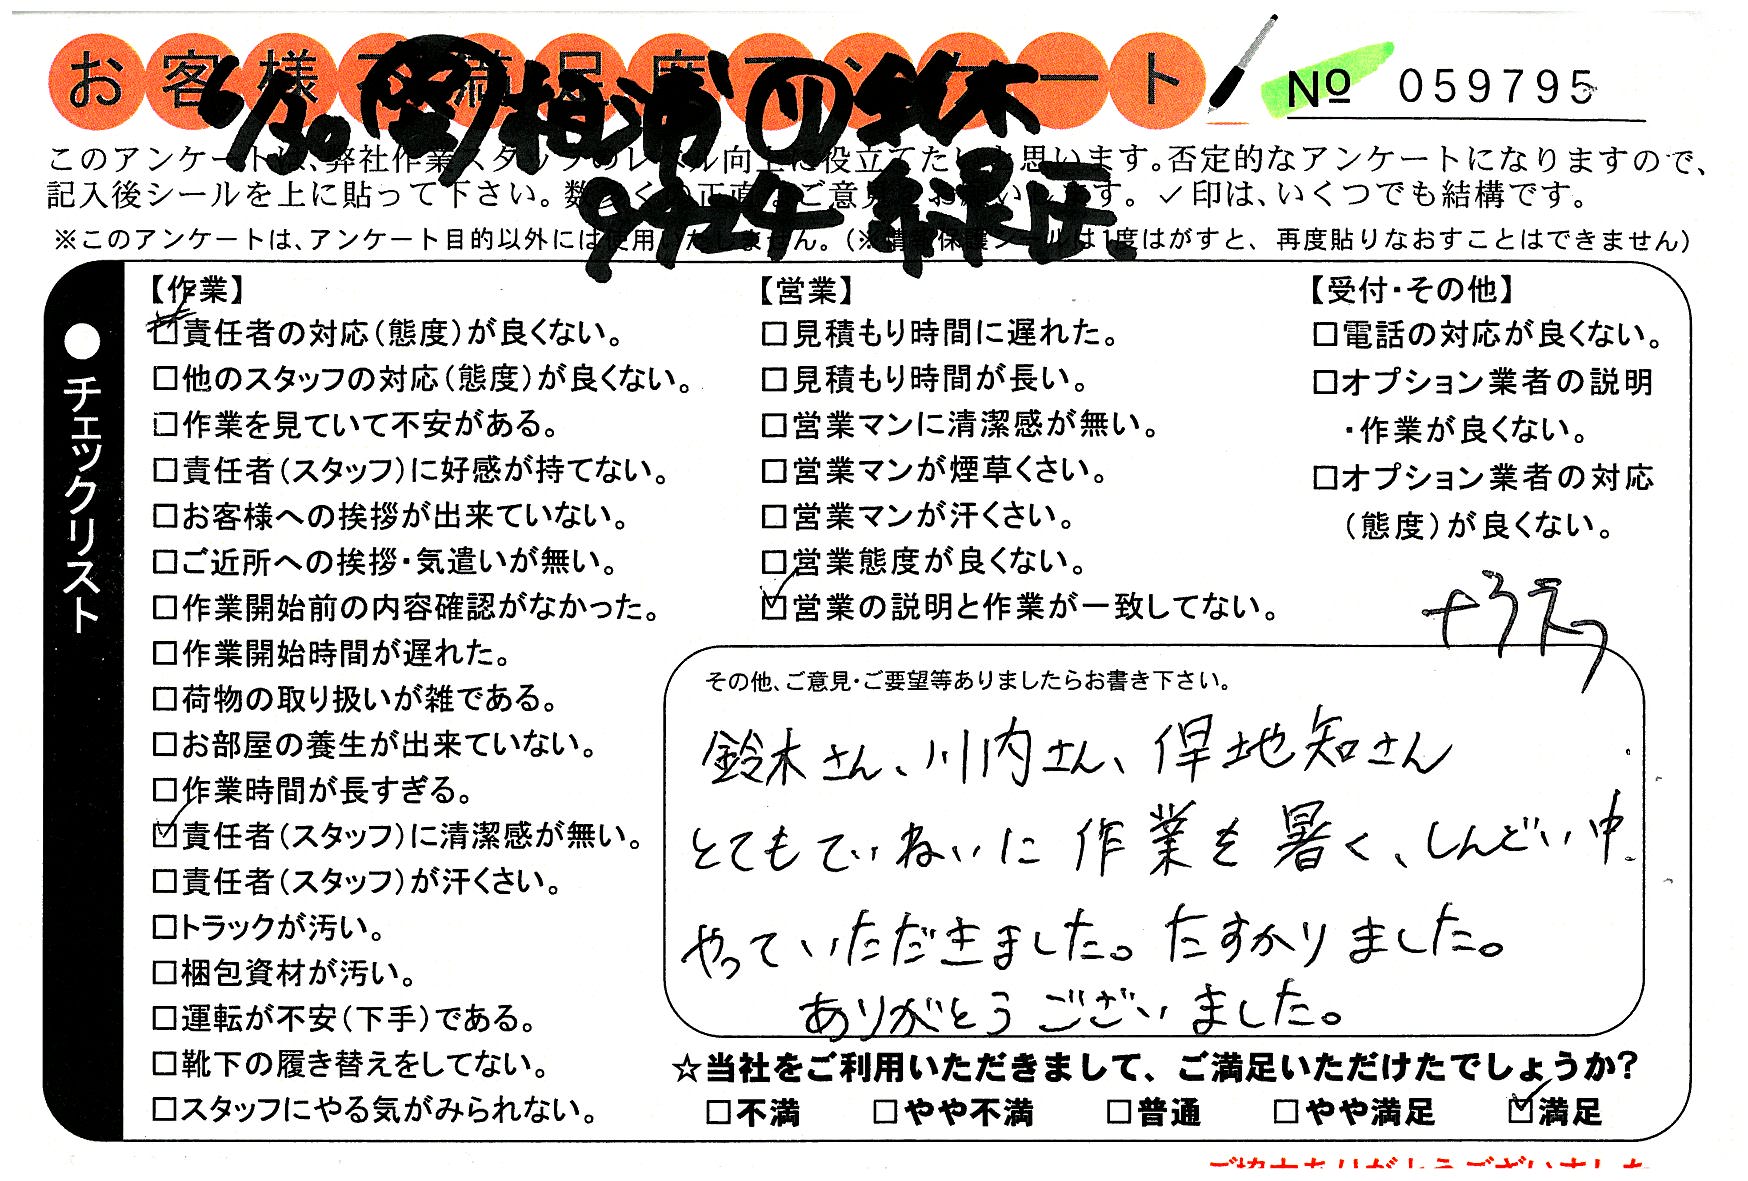 お客様不満足度アンケート No 059795
6/30 相浦 川 鈴木
このアンケートは、弊社作業スタッフのレベル向上に役立てたいと思います。否定的なアンケートになりますので、
記入後シールを上に貼って下さい。数多くの正直なご意見をお願いします。✓印は、いくつでも結構です。
※このアンケートは、アンケート目的以外には使用いたしません。(※情報保護シールは1度はがすと、再度貼りなおすことはできません)
●チェックリスト
【作業】
□責任者の対応(態度)が良くない。
□他のスタッフの対応(態度)が良くない。
□作業を見ていて不安がある。
□責任者(スタッフ)に好感が持てない。
□お客様への挨拶が出来ていない。
□ご近所への挨拶・気遣いが無い。
□作業開始前の内容確認がなかった。
□作業開始時間が遅れた。
□荷物の取り扱いが雑である。
□お部屋の養生が出来ていない。
□作業時間が長すぎる。
☑責任者(スタッフ)に清潔感が無い。
□責任者(スタッフ)が汗くさい。
□トラックが汚い。
□梱包資材が汚い。
□運転が不安(下手)である。
□靴下の履き替えをしてない。
□スタッフにやる気がみられない。
【営業】
□見積もり時間に遅れた。
□見積もり時間が長い。
□営業マンに清潔感が無い。
□営業マンが煙草くさい。
□営業マンが汗くさい。
□営業態度が良くない。
☑営業の説明と作業が一致してない。
【受付・その他】
□電話の対応が良くない。
□オプション業者の説明
・作業が良くない。
□オプション業者の対応
(態度)が良くない。
その他、ご意見・ご要望等ありましたらお書き下さい。
鈴木さん、川内さん、伊地知さん
とてもていねいに作業を暑く、しんどい中
やっていただきました。たすかりました。
ありがとうございました。
☆当社をご利用いただきまして、ご満足いただけたでしょうか?
□不満 □やや不満 □普通 □やや満足 ☑満足
ご協力ありがとうございました